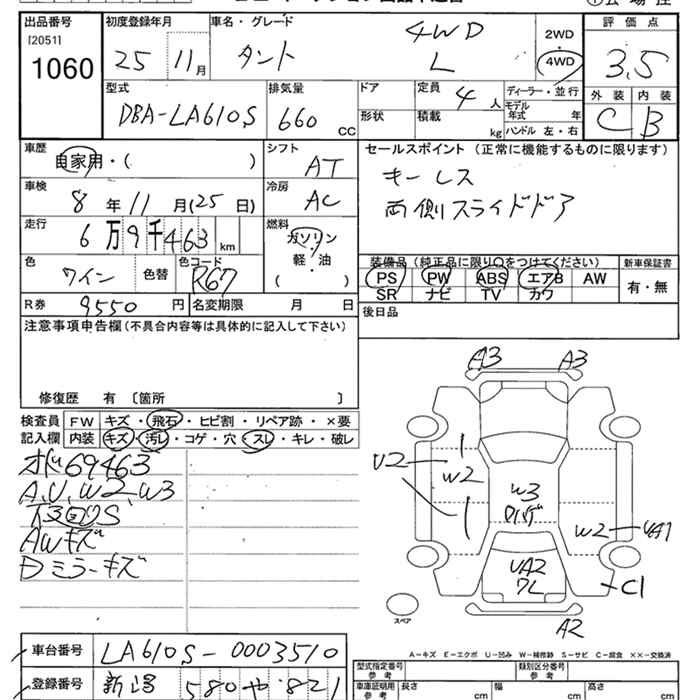 出品番号
[2051]
1060
初度登録年月
25 11月
車名・グレード
タント 4WD L
2WD・4WD
評価点
3.5
外装 内装
C B
型式
DBA-LA610S
排気量
660 CC
ドア
形状
定員
4 人
積載
kg
ディーラー・並行
モデル年式 年
ハンドル 左・右
車歴
自家用・( )
シフト
AT
セールスポイント (正常に機能するものに限ります)
キーレス
両側スライドドア
車検
8年 11月(25日)
冷房
AC
走行
6万9千463 km
燃料
ガソリン・軽・油
( )
色
ワイン
色替
色コード
R67
装備品 (純正品に限り○をつけてください)
PS PW ABS エアB AW
SR ナビ TV カワ
新車保証書
有・無
R券 9550 円
名変期限 月 日
後日品
注意事項申告欄 (不具合内容等は具体的に記入して下さい)
修復歴 有 〔箇所 〕
検査員記入欄
FW キズ・飛石・ヒビ割・リペア跡・×要
内装 キズ・汚レ・コゲ・穴・スレ・キレ・破レ
オド69463
A,U,W2,W3
AWキズ
Dミラーキズ
A3 A3
U2 W2
W3
W2 UA1
UA2
C1
A2
スペア
A-キズ E-エクボ U-凹み W-補修跡 S-サビ C-腐食 ××-交換済
車台番号 LA610S-0003510
登録番号 新潟 580 や 821
型式指定番号
参考
類別区分番号
参考
車庫証明用
参考
長さ cm 幅 cm 高さ cm